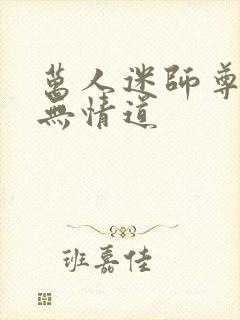 萬人迷師尊
無情道
班嘉佳